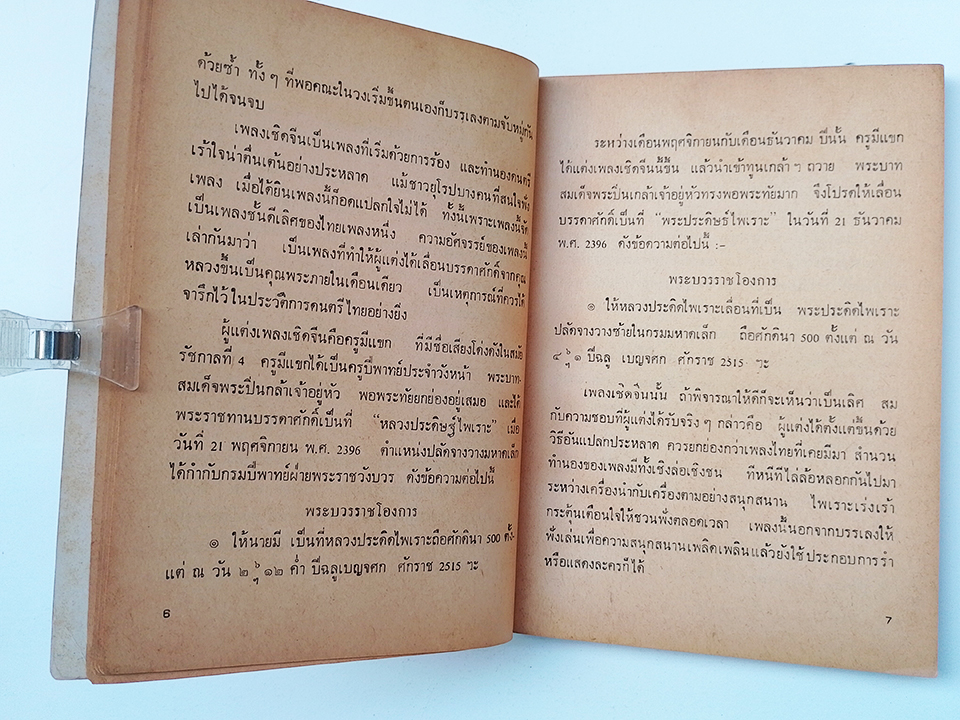 ด้วยซ้ำ ทั้ง ๆ ที่พอคณะในวงเริ่มขึ้นตนเองก็บรรเลงตามจับหมู่กัน
ไปได้จนจบ
เพลงเชิดจีนเป็นเพลงที่เริ่มด้วยการร้อง และทำนองดนตรี
เร้าใจน่าตื่นเต้นอย่างประหลาด แม้ชาวยุโรปบางคนที่สนใจฟัง
เพลง เมื่อได้ยินเพลงนี้ก็อดแปลกใจไม่ได้ ทั้งนี้เพราะเพลงนี้จัด
เป็นเพลงชั้นดีเลิศของไทยเพลงหนึ่ง ความอัศจรรย์ของเพลงนี้
เล่ากันมาว่า เป็นเพลงที่ทำให้ผู้แต่งได้เลื่อนบรรดาศักดิ์จากคุณ
หลวงขึ้นเป็นคุณพระภายในเดือนเดียว เป็นเหตุการณ์ที่ควรได้
จารึกไว้ในประวัติการดนตรีไทยอย่างยิ่ง
ผู้แต่งเพลงเชิดจีนคือครูมีแขก ที่มีชื่อเสียงโด่งดังในสมัย
รัชกาลที่ 4 ครูมีแขกได้เป็นครูปี่พาทย์ประจำวังหน้า พระบาท-
สมเด็จพระปิ่นเกล้าเจ้าอยู่หัว พอพระทัยยกย่องอยู่เสมอ และได้
พระราชทานบรรดาศักดิ์เป็นที่ “หลวงประดิษฐ์ไพเราะ” เมื่อ
วันที่ 21 พฤศจิกายน พ.ศ. 2396 ตำแหน่งปลัดจางวางมหาดเล็ก
ได้กำกับกรมปี่พาทย์ฝ่ายพระราชวังบวร ดังข้อความต่อไปนี้
พระบวรราชโองการ
๏ ให้นายมี เป็นที่หลวงประดิดไพเราะถือศักดินา 500 ตั้ง-
แต่ ณ วัน ๒ ๖ฯ ๑๒ ค่ำ ปีฉลูเบญจศก ศักราช 2515 ฯะ
6
ระหว่างเดือนพฤศจิกายนกับเดือนธันวาคม ปีนั้น ครูมีแขก
ได้แต่งเพลงเชิดจีนนี้ขึ้น แล้วนำเข้าทูนเกล้า ๆ ถวาย พระบาท
สมเด็จพระปิ่นเกล้าเจ้าอยู่หัวทรงพอพระทัยมาก จึงโปรดให้เลื่อน
บรรดาศักดิ์เป็นที่ “พระประดิษฐ์ไพเราะ” ในวันที่ 21 ธันวาคม
พ.ศ. 2396 ดังข้อความต่อไปนี้ :-
พระบวรราชโองการ
๏ ให้หลวงประดิดไพเราะเลื่อนที่เป็น พระประดิดไพเราะ
ปลัดจางวางซ้ายในกรมมหาดเล็ก ถือศักดินา 500 ตั้งแต่ ณ วัน
๔ ๖ฯ ๑ ปีฉลู เบญจศก ศักราช 2515 ฯะ
เพลงเชิดจีนนั้น ถ้าพิจารณาให้ดีก็จะเห็นว่าเป็นเลิศ สม
กับความชอบที่ผู้แต่งได้รับจริง ๆ กล่าวคือ ผู้แต่งได้ตั้งแต่ขึ้นด้วย
วิธีอันแปลกประหลาด ควรยกย่องกว่าเพลงไทยที่เคยมีมา สำนวน
ทำนองของเพลงมีทั้งเชิงล่อเชิงชน ทีหนีทีไล่ล้อหลอกกันไปมา
ระหว่างเครื่องนำกับเครื่องตามอย่างสนุกสนาน ไพเราะเร่งเร้า
กระตุ้นเตือนใจให้ชวนฟังตลอดเวลา เพลงนี้นอกจากบรรเลงให้
ฟังเล่นเพื่อความสนุกสนานเพลิดเพลินแล้วยังใช้ประกอบการรำ
หรือแสดงละครก็ได้
7